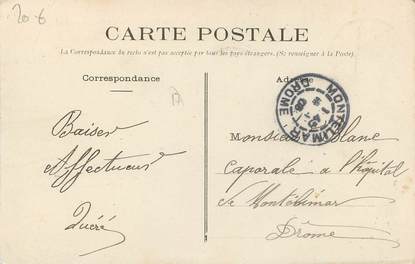 20-6
CARTE POSTALE
La Correspondance du recto n'est pas acceptée par tous les pays étrangers. (Se renseigner à la Poste).
Correspondance
Adresse
MONTELIMAR
DROME
Baiser
Affectueux
Monsieur Blanc
Caporale a l'hôpital
de Montélimar
Drôme